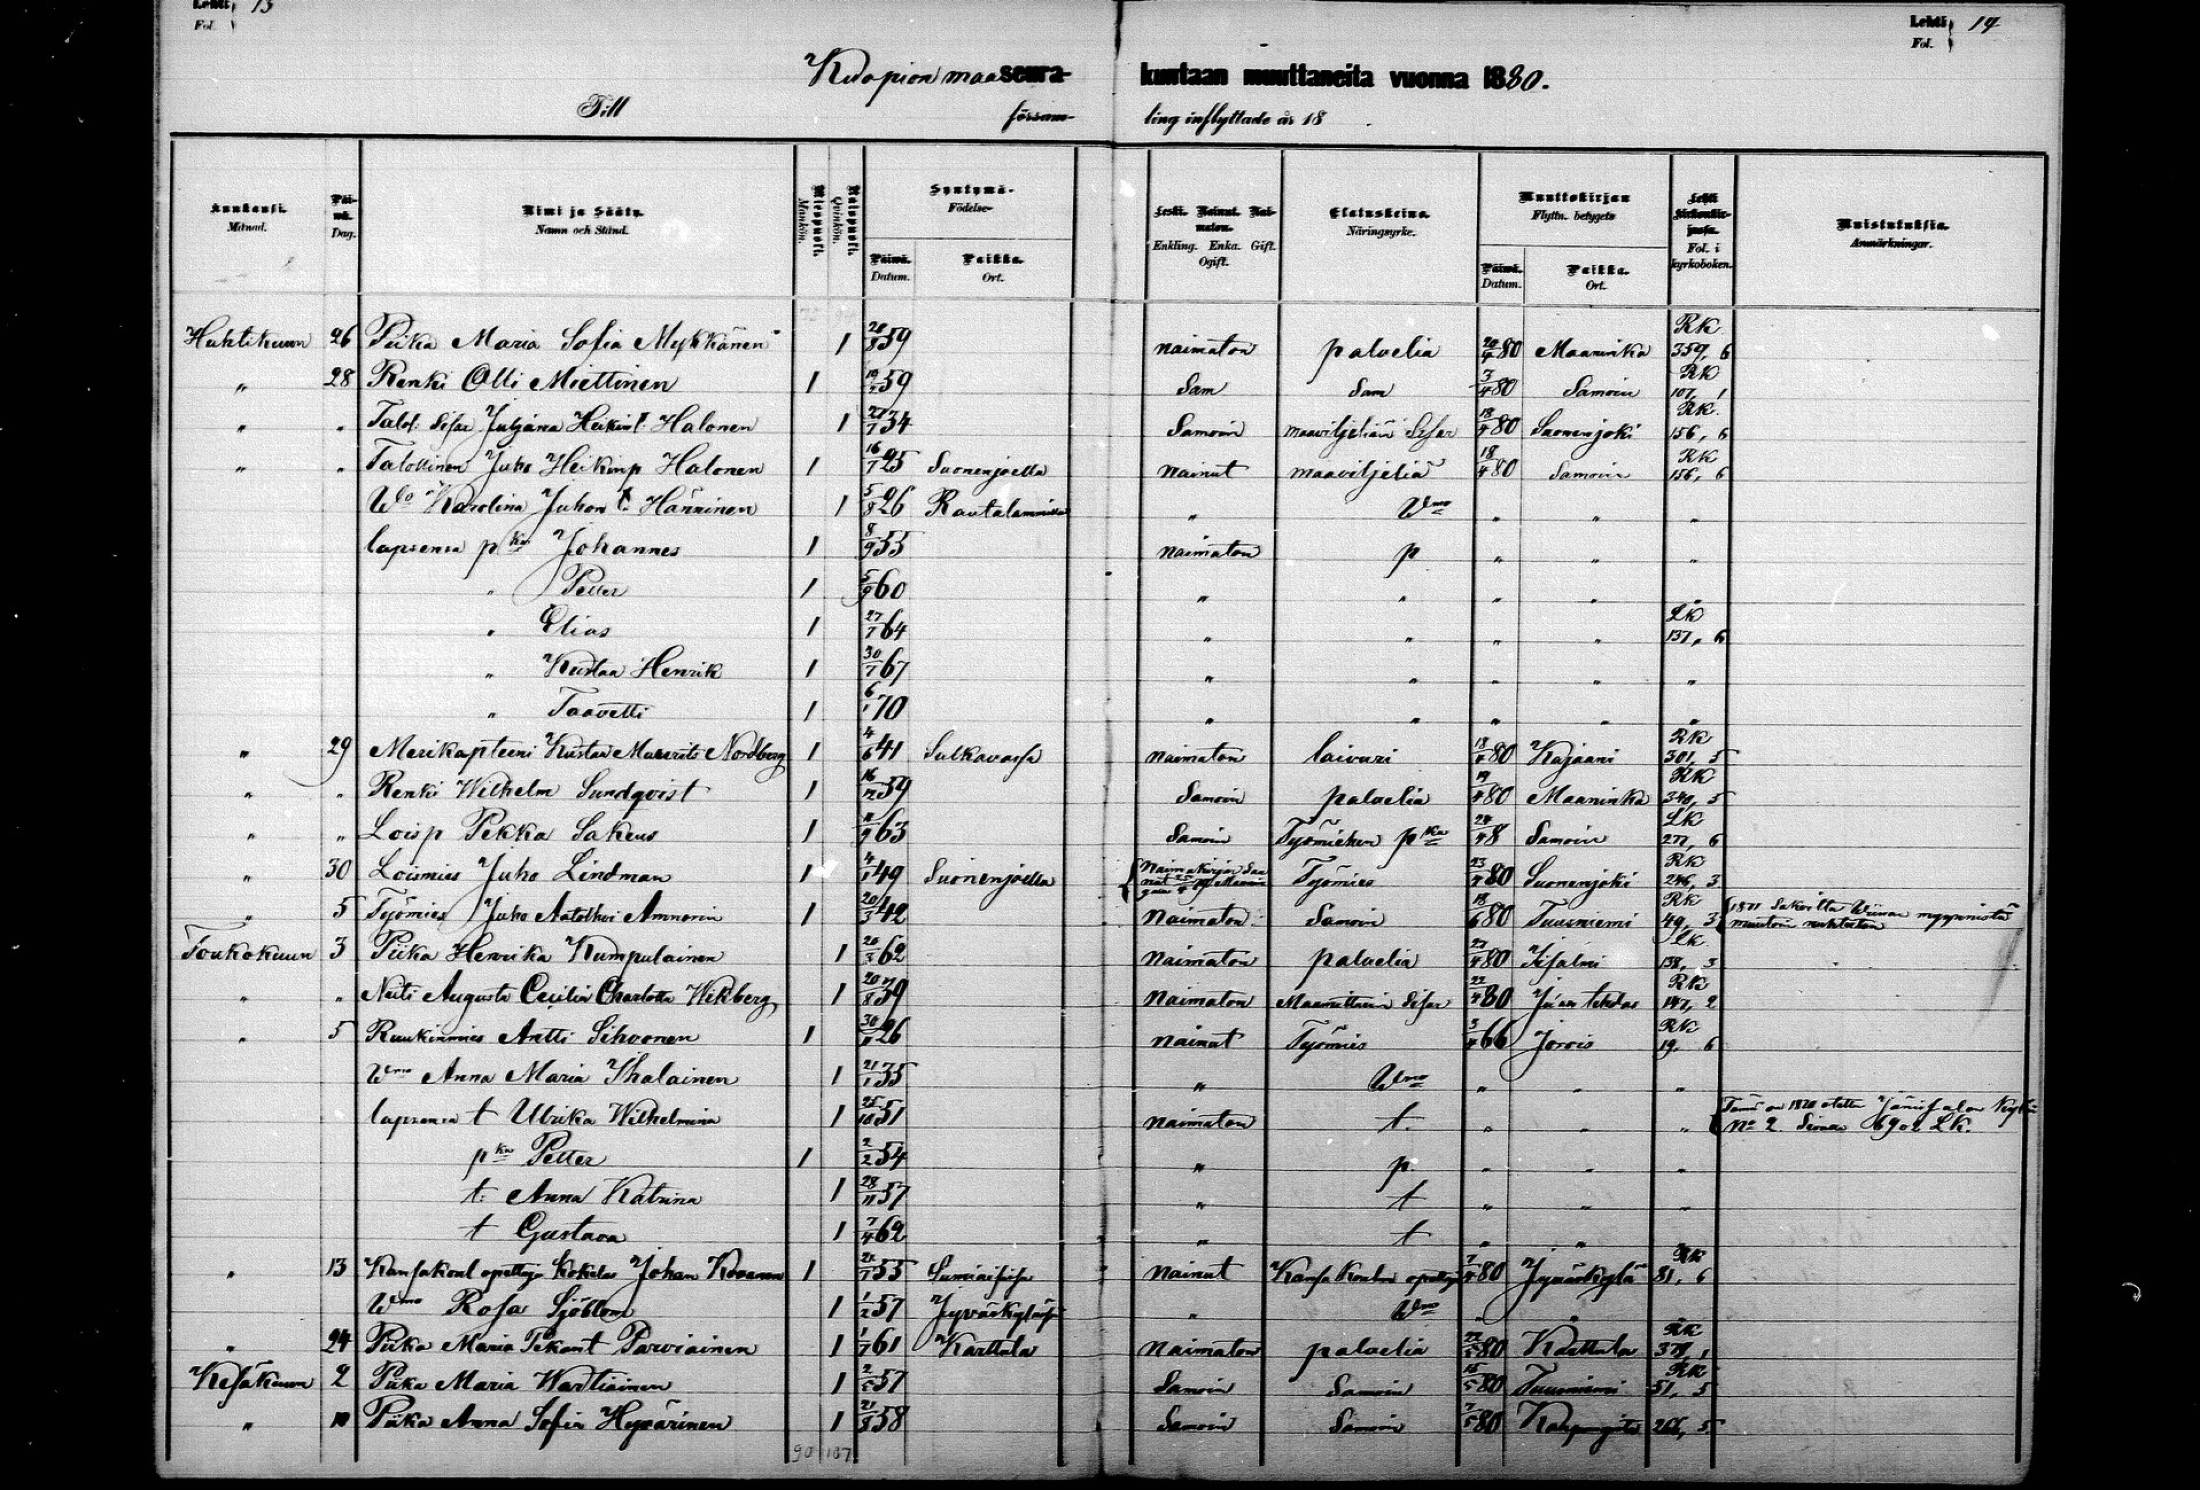 Lehti 13 Lehti 14
Fol. Fol.
Kuopion maaseura- kuntaan muuttaneita vuonna 1880.
Till försam- ling inflyttade år 18 .
Kuukausi. Månad. Päi-wä. Dag. Nimi ja Sääty. Namn och Stånd. Miespuoli. Mankön. Naispuoli. Qvinkön. Syntymä- Födelse- Päiwä. Datum. Paikka. Ort. Leski. Nainut. Nai-maton. Enkling. Enka. Gift. Ogift. Elatuskeino. Näringsyrke. Muuttokirjan Flyttn. betygets Päiwä. Datum. Paikka. Ort. Lehti Kirkonkir-jassa. Fol. i kyrkoboken. Muistutuksia. Anmärkningar.
Huhtikuun 26 Piika Maria Sofia Mykkänen 1 20/8 59 naimaton palvelia 20/4 80 Maaninka RK 359, 6
" 28 Renki Olli Miettinen 1 59 Sam Sam 3/4 80 Samoin RK 107, 1
" " Talol. Sisar Juljana Heikint. Halonen 1 27/7 34 Samoin maaviljeliän Sisar 18/4 80 Suonenjoki RK 156, 6
" " Talollinen Juho Heikinp Halonen 1 16/7 25 Suonenjoella nainut maaviljeliä 18/4 80 Samoin RK 156, 6
Wo Karolina Juhon t Hänninen 1 5/8 26 Rautalammilla " Wmo " " "
lapsensa pka Johannes 1 8/9 55 naimaton p " " "
" Petter 1 5/9 60 " " " " "
" Elias 1 27/7 64 " " " " LK 137, 6
" Kustaa Henrik 1 30/7 67 " " " " "
" Taavetti 1 6/1 70 " " " " "
" 29 Merikapteeni Kustaa Maurits Nordberg 1 4/6 41 Sulkavassa naimaton laivuri 18/4 80 Kajaani RK 301, 5
" " Renki Wilhelm Sundqvist 1 16/12 59 Samoin palvelia 19/4 80 Maaninka RK 340, 5
" " Loisp Pekka Sakeus 1 63 Samoin Työmiehen pka 24/4 8 Samoin LK 277, 6
" 30 Loismies Juho Lindman 1 4/1 49 Suonenjoella Naimakirjan Työmies 23/4 80 Suonenjoki RK 246, 3
" 5 Työmies Juho Aatolhvi Ammonin 1 20/3 42 Naimaton Samoin 18/6 80 Tuusniemi RK 49, 3 1871 Sakoitta Wiinan myynnistä muutoin nuhteeton
Toukokuun 3 Piika Henrika Kumpulainen 1 20/3 62 Naimaton palvelia 27/4 80 Iisalmi LK 138, 3
" " Neiti Augusta Cecilia Charlotta Wikberg 1 20/8 39 Naimaton Maamittarin Sisar 22/4 80 Juantehdas RK 147, 2
" 5 Ruukinmies Antti Sihvonen 1 30/11 26 nainut Työmies 3/4 66 Jorois RK 19, 6
Wmo Anna Maria Ihalainen 1 21/1 35 " Wmo " " "
lapsensa t Ulrika Wilhelmina 1 25/10 51 naimaton t. " " " No 2. LK.
pka Petter 1 2/2 54 " p " " "
t: Anna Katrina 1 28/11 57 " t " " "
t Gustava 1 7/4 62 " t " "
" 13 Kansakoul opettaja Kokelas Johan Kovanen 1 21/7 55 Sumiaisissa Nainut Kansa Koulun opettaja 7/4 80 Jyväskylä RK 81, 6
Wmo Rosa Sjöblom 1 1/2 57 Jyväskylässä " Wmo " "
" 24 Piika Maria Pekant Parviainen 1 1/7 61 Karttula Naimaton palvelia 22/5 80 Karttula RK 378, 1
Kesäkuun 2 Piika Maria Wartiainen 1 2/5 57 Samoin Samoin 15/5 80 Tuusniemi RK 51, 5
" 10 Piika Anna Sofia Hyvärinen 1 21/8 58 Samoin Samoin 7/5 80 Kaupungista 266, 5
90 107